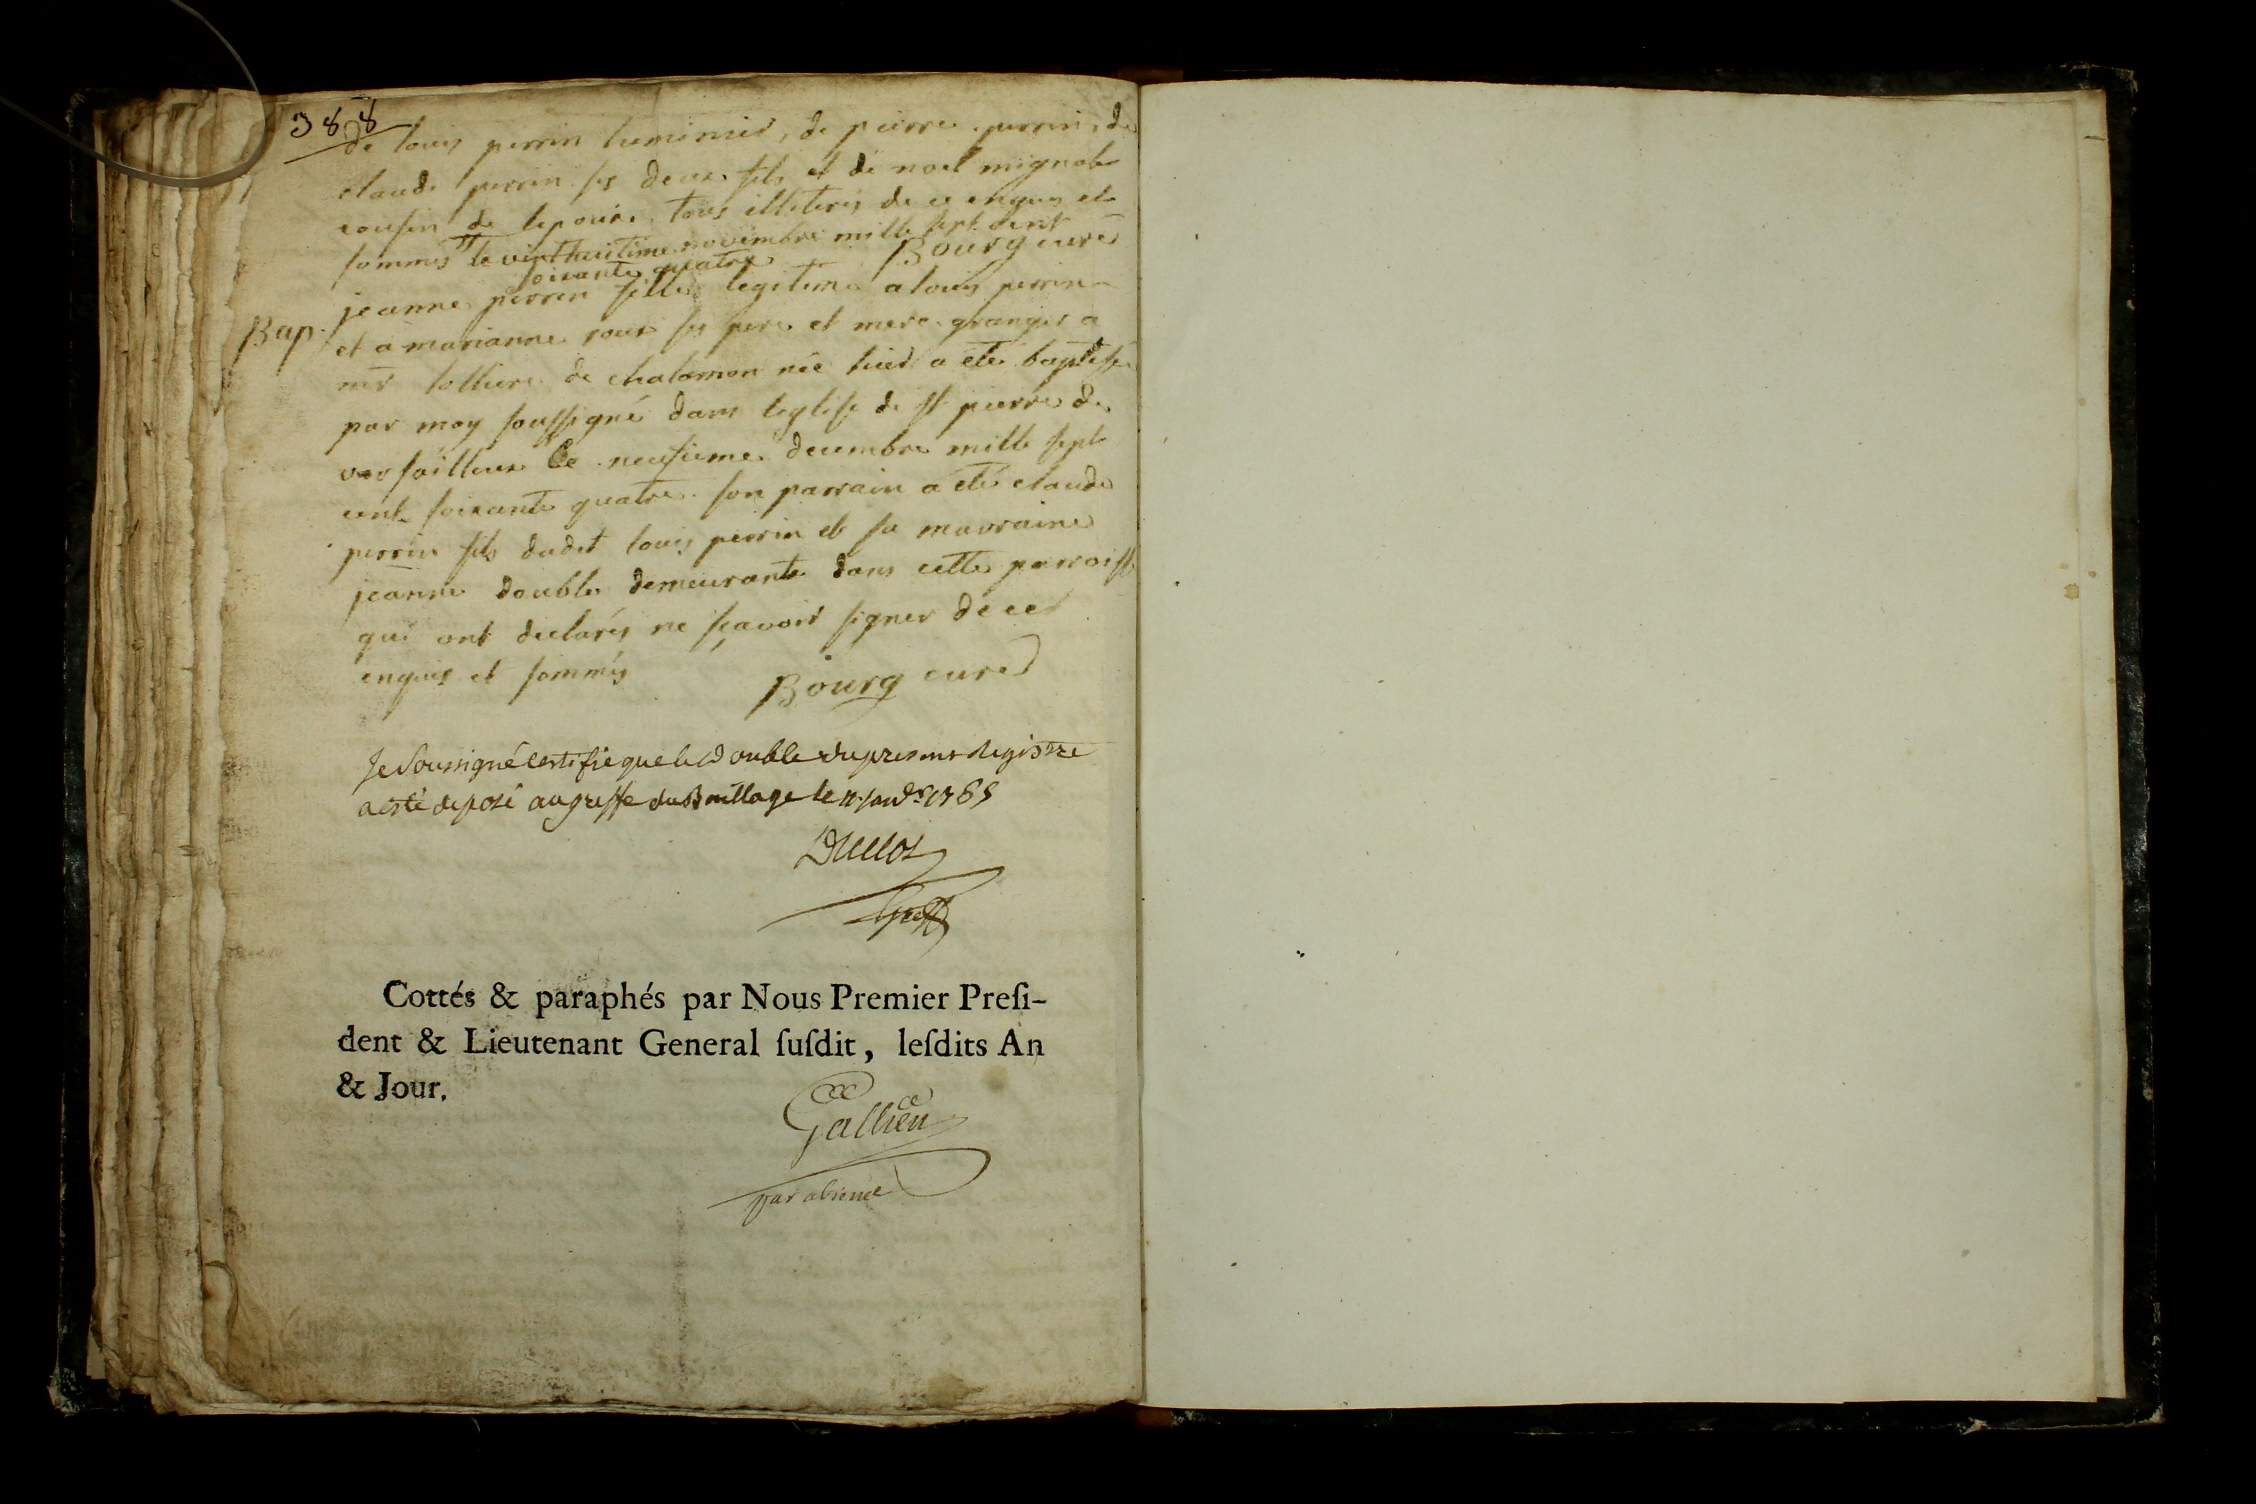 388
de louis perrin luminier, de pierre perrin, de
claude perrin ses deux fils et de noel mignot
cousin de lepouse tous illiterés de ce enquis et
sommés le vint huitieme novembre mille sept cent
soixante quatre Bourg curé
Bap. jeanne perrin fille legitime a louis perrin
et a marianne roux ses pere et mere granger a
mr tolliere de chalamon née hier a eté baptisée
par moy soussigné dans leglise de st pierre de
versailleux Ce neufieme decembre mille sept
cent soixante quatre son parrain a eté claude
perrin fils dudit louis perrin et sa marraine
jeanne double demeurante dans cette parroisse
qui ont declarés ne sçavoir signer de ce
enquis et sommés Bourg curé
Je Soussigné Certifie que le Double du present Registre
a esté deposé au greffe du Bailliage le 11 janvr 1765
Duclos
greff
Cottés & paraphés par Nous Premier Preſi-
dent & Lieutenant General ſuſdit, leſdits An
& Jour.
Gallien
par absence